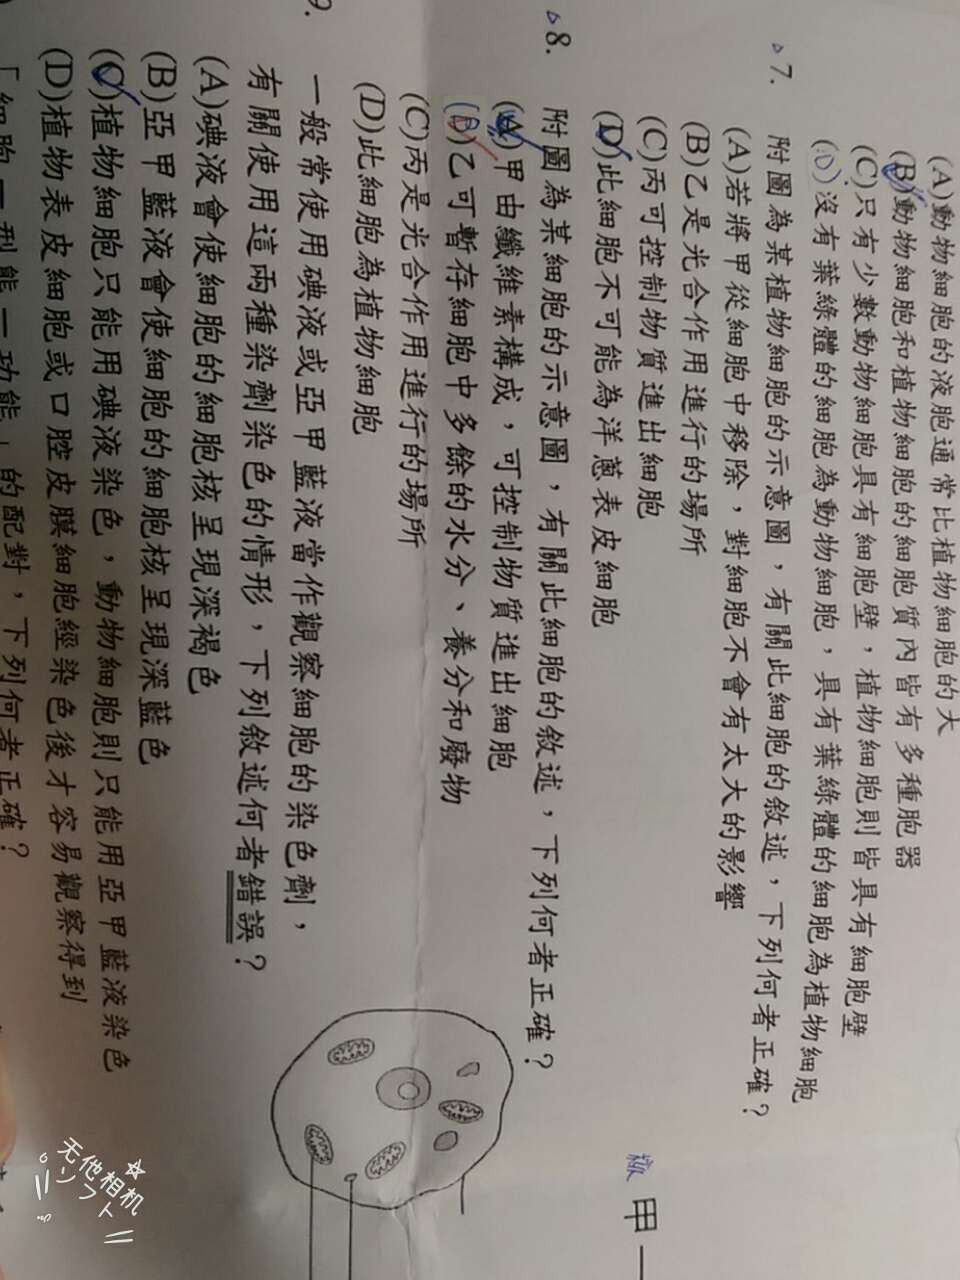 (A)動物細胞的液胞通常比植物細胞的大
(B)動物細胞和植物細胞的細胞質內皆有多種胞器
(C)只有少數動物細胞具有細胞壁，植物細胞則皆具有細胞壁
(D)沒有葉綠體的細胞為動物細胞，具有葉綠體的細胞為植物細胞
7. 附圖為某植物細胞的示意圖，有關此細胞的敘述，下列何者正確？
(A)若將甲從細胞中移除，對細胞不會有太大的影響
(B)乙是光合作用進行的場所
(C)丙可控制物質進出細胞
(D)此細胞不可能為洋蔥表皮細胞
8. 附圖為某細胞的示意圖，有關此細胞的敘述，下列何者正確？
(A)甲由纖維素構成，可控制物質進出細胞
(B)乙可暫存細胞中多餘的水分、養分和廢物
(C)丙是光合作用進行的場所
(D)此細胞為植物細胞
9. 一般常使用碘液或亞甲藍液當作觀察細胞的染色劑，
有關使用這兩種染劑染色的情形，下列敘述何者錯誤？
(A)碘液會使細胞的細胞核呈現深褐色
(B)亞甲藍液會使細胞的細胞核呈現深藍色
(C)植物細胞只能用碘液染色，動物細胞則只能用亞甲藍液染色
(D)植物表皮細胞或口腔皮膜細胞經染色後才容易觀察得到
「細胞－型態－功能」的配對，下列何者正確？
甲
无他相机
ソフト